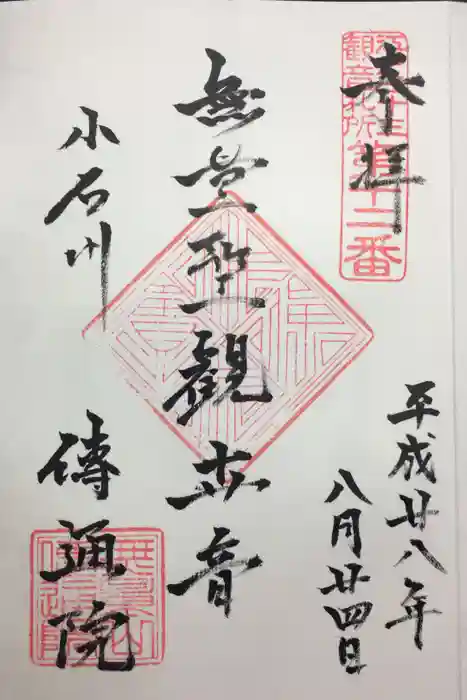 奉拝
江戸三十三
観音札所第十二番
平成廿八年
八月廿四日
無量聖観世音
小石川
傳通院